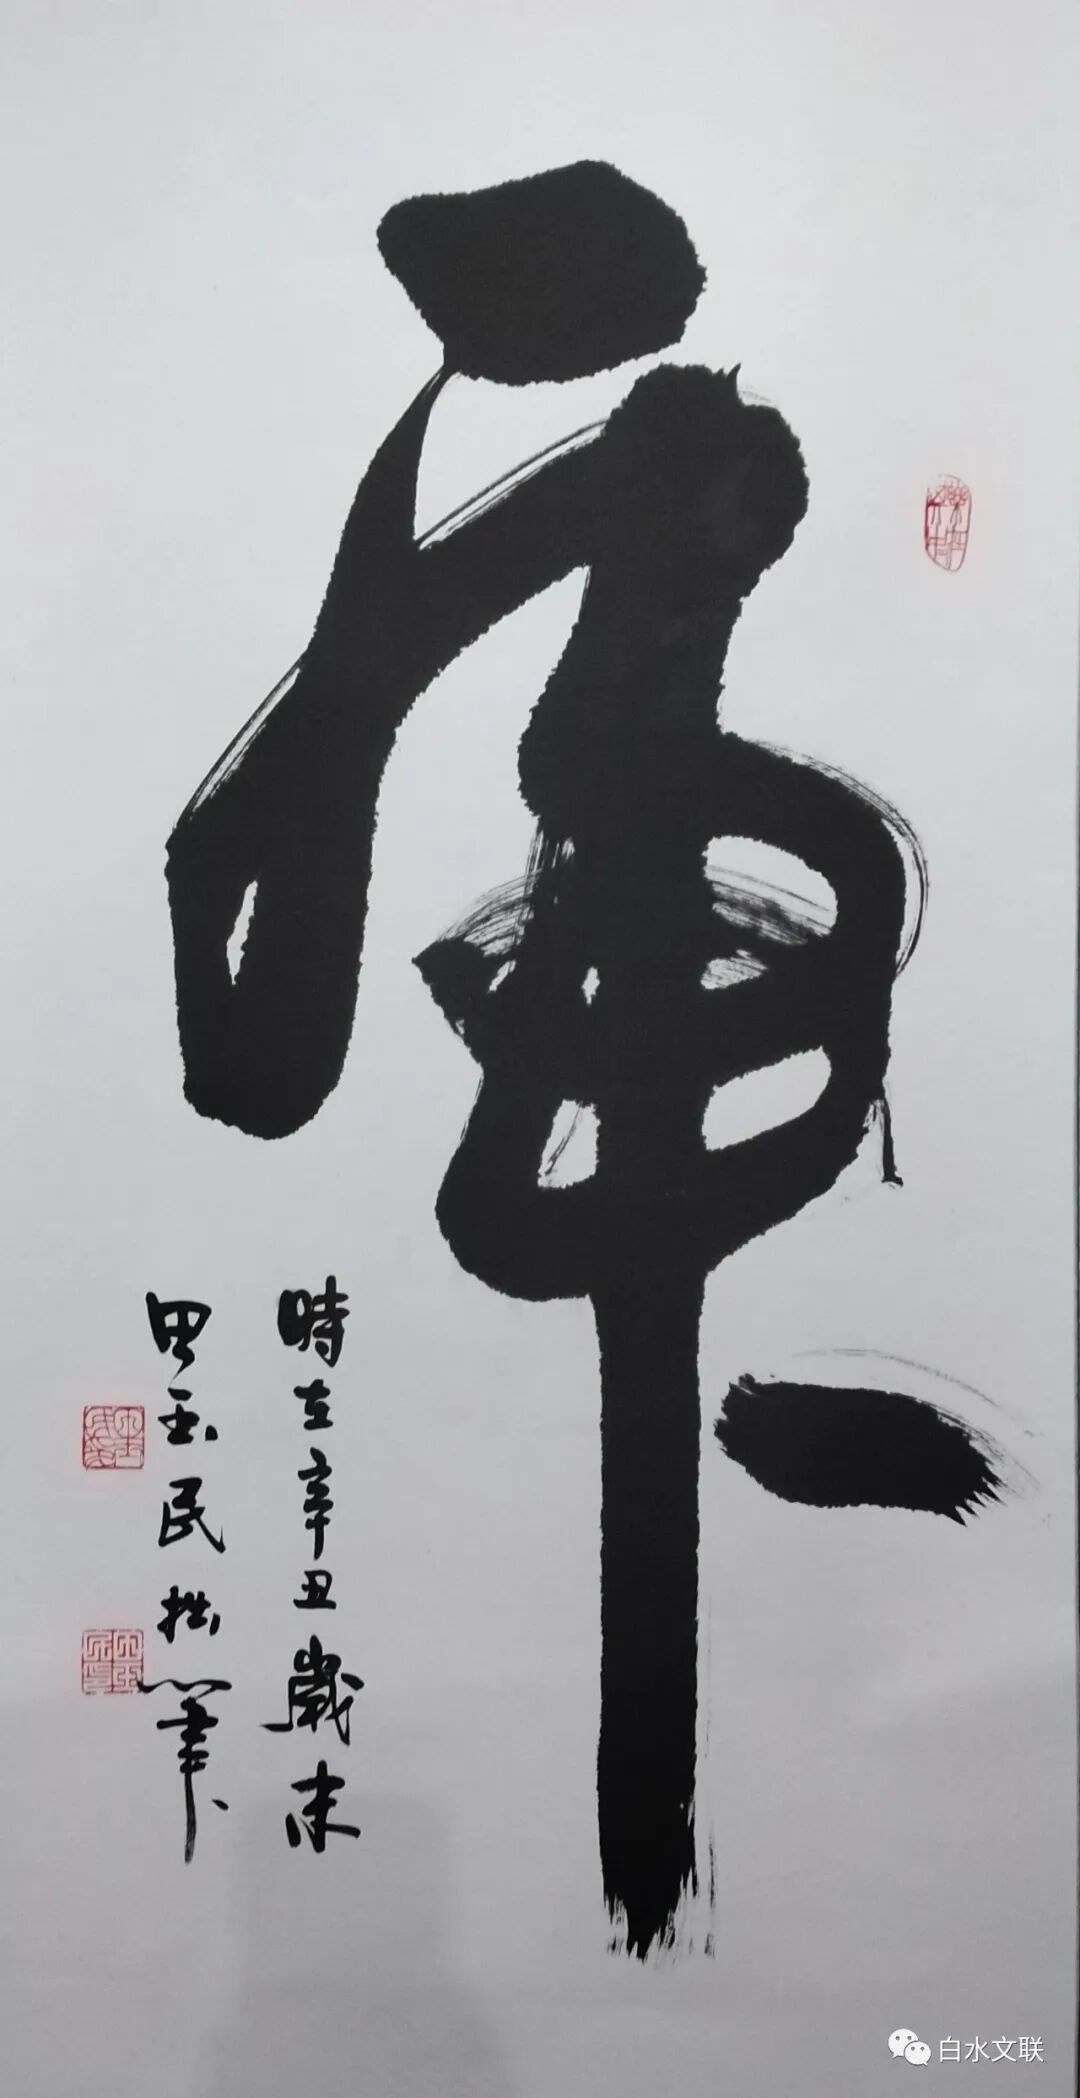 虎
時在辛丑歲末
田玉民拙筆
白水文联